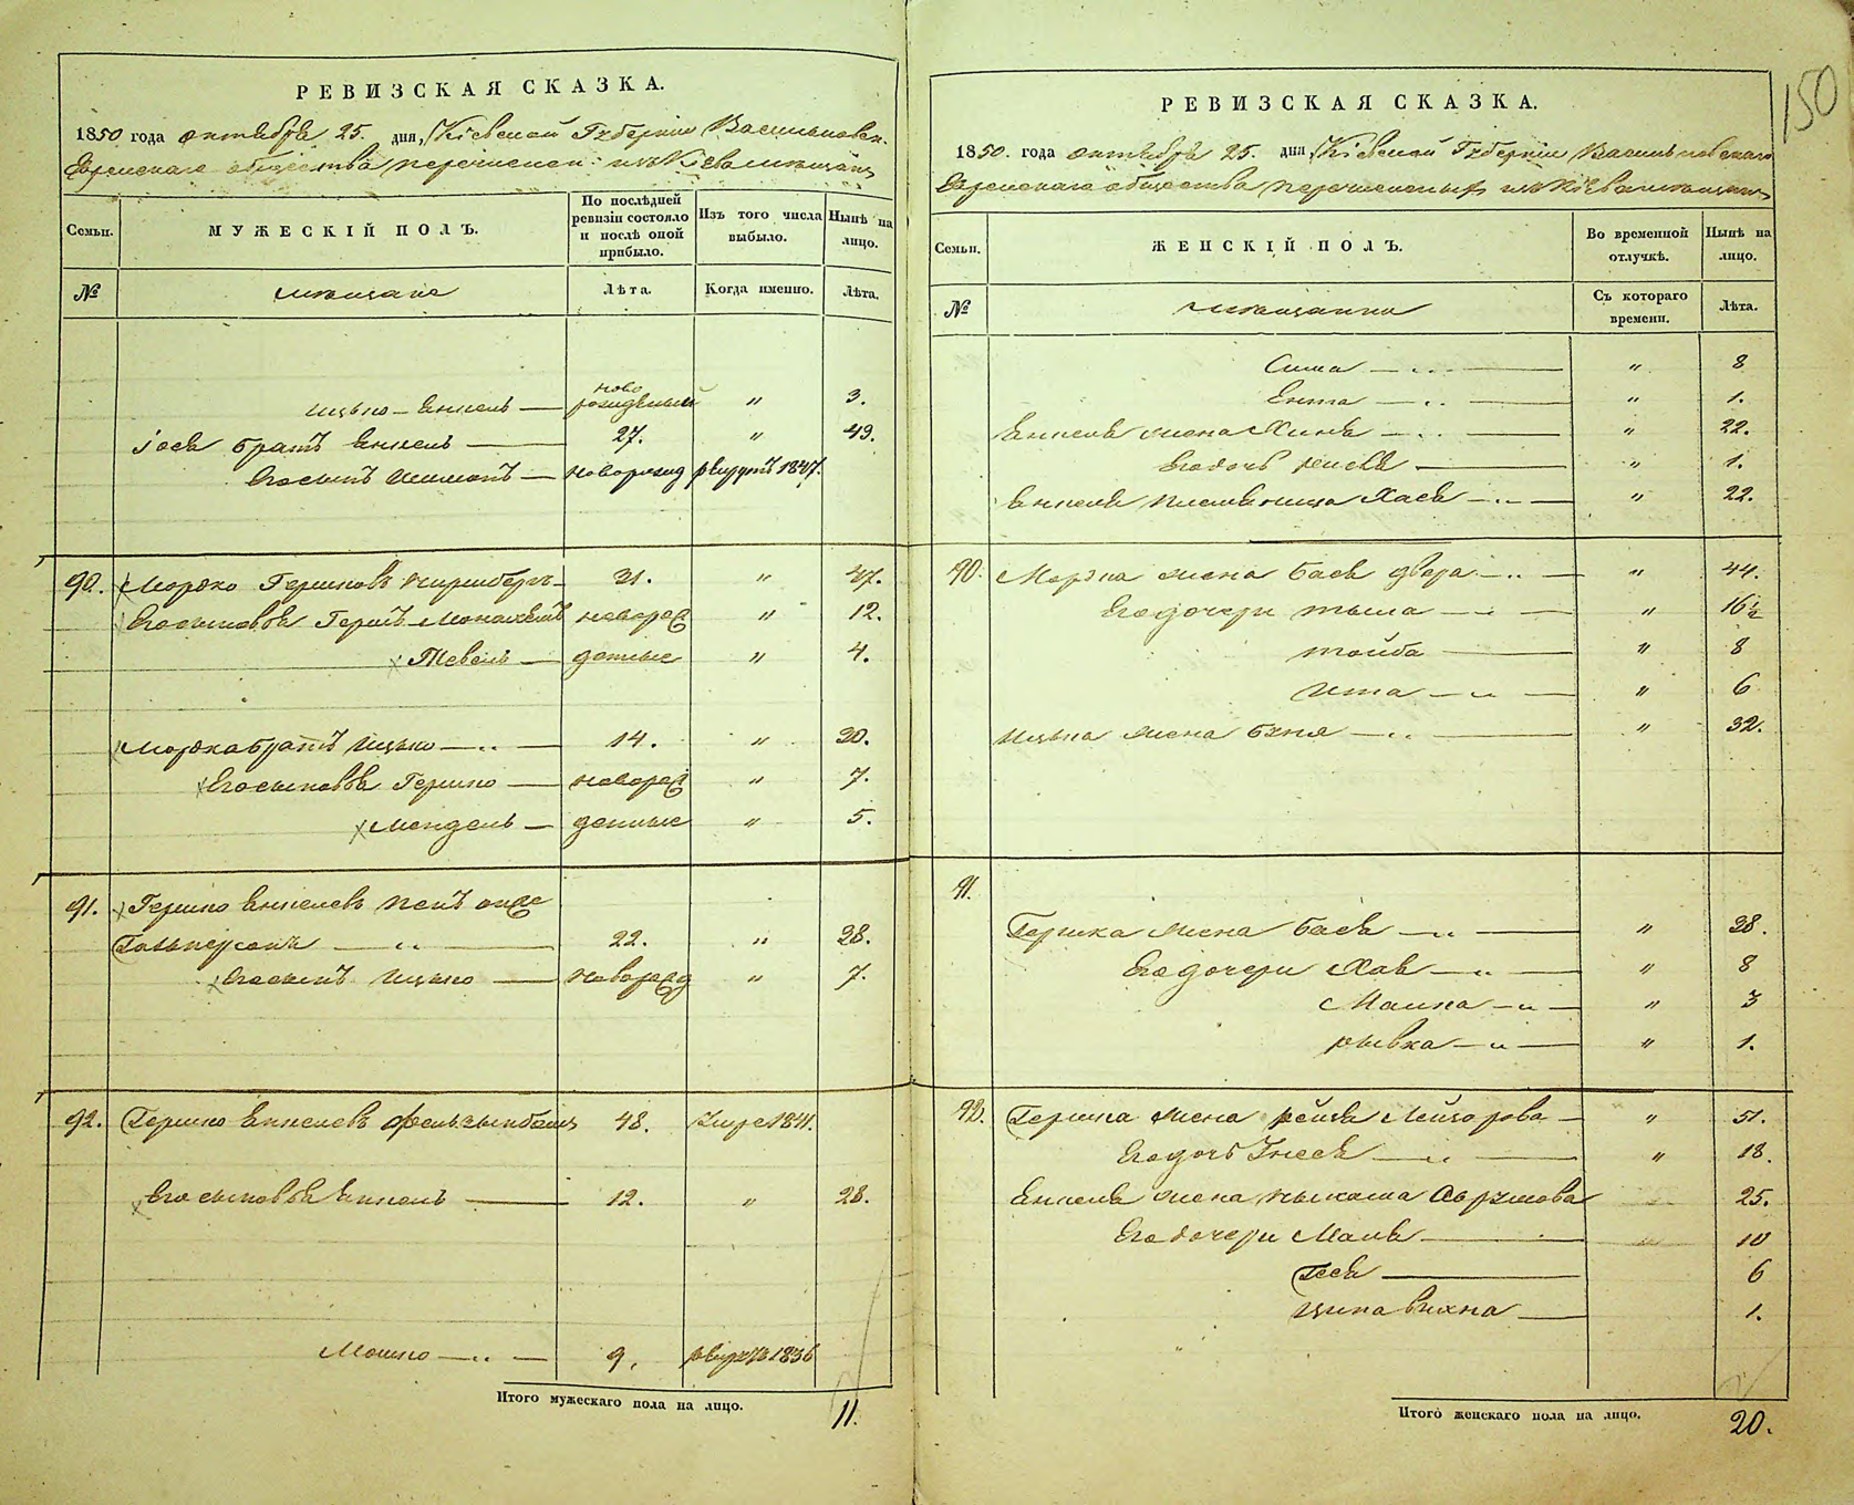 РЕВИЗСКАЯ СКАЗКА.
1850 года октября 25. дня, Кіевской Губерніи Васильковск.
Еврейскаго общества
Семьи.
МУЖЕСКІЙ ПОЛЪ.
По последней ревизіи состояло и послѣ оной прибыло.
Изъ того числа выбыло.
Нынѣ на лицо.
№
мѣщане
Лѣта.
Когда именно.
Лѣта.
Ицько-Янкель — новорожденный " 3.
братъ Янкель — 27. " 43.
Его сынъ — новорожд рекрутъ 1847.
90. Мордко Гершковъ 31. " 47.
Его сыновья Герш Монахемъ новорож " 12.
Тевель — денные " 4.
Мордка братъ Ицько — 14. " 30.
Его сыновья Гершко — новорож " 7.
Мендель — денные " 5.
91. Гершко Янкелевъ
Гальперсонъ — 22. " 28.
Его сынъ Ицько — новорожд " 7.
92. Гершко Янкелевъ 48. умре 1841.
Его сыновья Янкель — 12. " 28.
Мошко — 9. рекрутъ 1836
Итого мужескаго пола на лицо. 11.
150
РЕВИЗСКАЯ СКАЗКА.
1850. года октября 25. дня, Кіевской Губерніи Васильковскаго
Еврейскаго общества
Семьи.
ЖЕНСКІЙ ПОЛЪ.
Во временной отлучкѣ.
Нынѣ на лицо.
№
мѣщанки
Съ котораго времени.
Лѣта.
Сима — " 8
Ента — " 1.
Янкеля жена — " 22.
Его дочь — " 1.
Янкеля племяница Хася — " 22.
90. Мордка жена Бася Двера — " 44.
Его дочери — " 16½
тойба — " 8
Ита — " 6
Ицька жена — " 32.
91.
Гершка жена Бася — " 28.
Его дочери Хая — " 8
Малка — " 3
рывка — " 1.
92. Гершка жена рейзя Лейзорова — " 51.
Его дочь Гнеся — " 18.
Янкеля жена Абрумова 25.
Его дочери Маля — 10
Гися — 6
Ципа Вихна — 1.
Итого женскаго пола на лицо. 20.